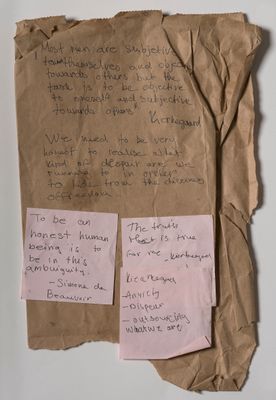 Most men are subjective
towards themselves and objective
towards others but the
task is to be objective
to oneself and subjective
towards others
Kierkegaard
We need to be very
honest to realise what
kind of despair are we
running to in order
to hide from the dizziness
of freedom
To be an
honest human
being is to
be in this
ambiguity.
- Simone de
Beauvoir
The truth
that is true
for me - kierkegaard
Kierkegaard
- Anxiety
- Dispear
- outsourcing
what we are